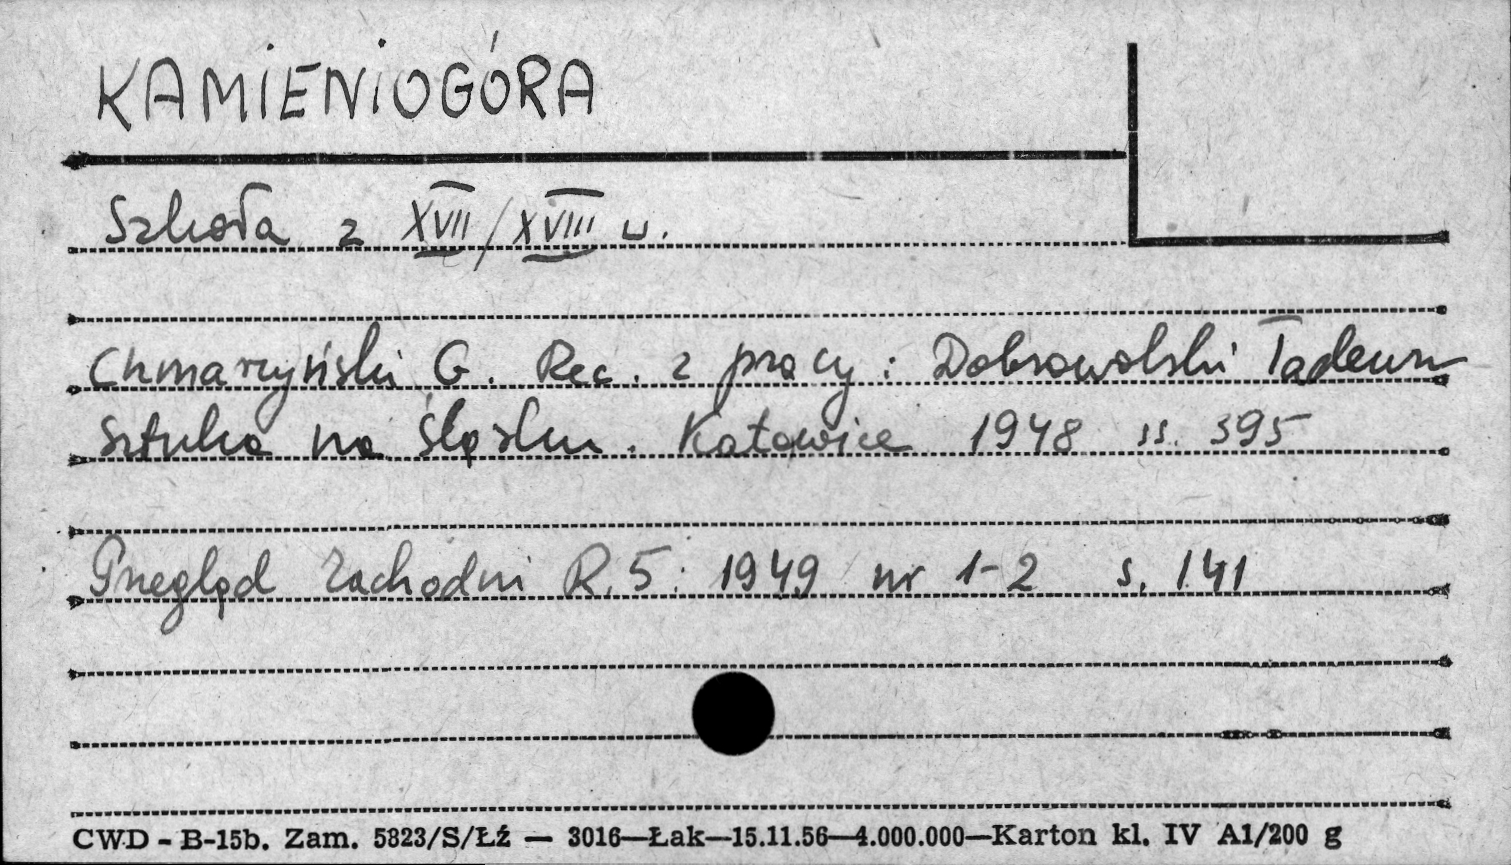 KAMIENIOGÓRA
Szkoła z XVII/XVIII w.
Chmarzyński G. Rec. z pracy: Dobrowolski Tadeusz
Sztuka na Śląsku. Katowice 1948 ss. 395
Przegląd Zachodni R.5: 1949 nr 1-2 s. 141
CWD - B-15b. Zam. 5823/S/Łź — 3016—Łak—15.11.56—4.000.000—Karton kl. IV A1/200 g